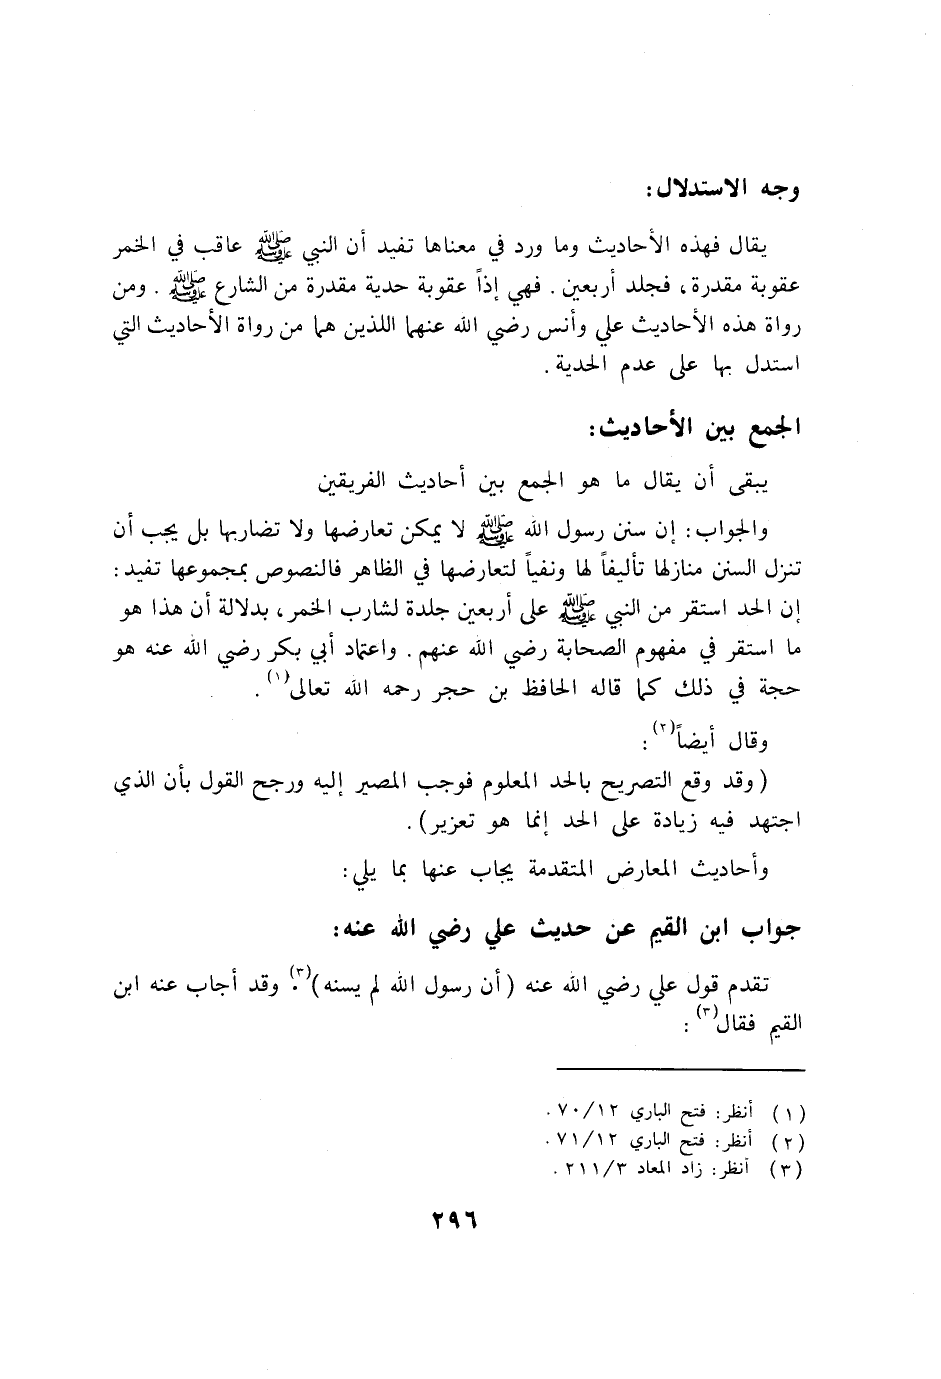 وجه الاستدلال:
يقال فهذه الأحاديث وما ورد في معناها تفيد أن النبي ﷺ عاقب في الخمر
عقوبة مقدرة، فجلد أربعين. فهي إذاً عقوبة حدية مقدرة من الشارع ﷺ. ومن
رواة هذه الأحاديث علي وأنس رضي الله عنهما اللذين هما من رواة الأحاديث التي
استدل بها على عدم الحدية.
الجمع بين الأحاديث:
يبقى أن يقال ما هو الجمع بين أحاديث الفريقين
والجواب: إن سنن رسول الله ﷺ لا يمكن تعارضها ولا تضاربها بل يجب أن
تنزل السنن منازلها تأليفاً لها ونفياً لتعارضها في الظاهر فالنصوص بمجموعها تفيد:
إن الحد استقر من النبي ﷺ على أربعين جلدة لشارب الخمر، بدلالة أن هذا هو
ما استقر في مفهوم الصحابة رضي الله عنهم. واعتماد أبي بكر رضي الله عنه هو
حجة في ذلك كما قاله الحافظ بن حجر رحمه الله تعالى(١).
وقال أيضاً(٢):
(وقد وقع التصريح بالحد المعلوم فوجب المصير إليه ورجح القول بأن الذي
اجتهد فيه زيادة على الحد إنما هو تعزير).
وأحاديث المعارض المتقدمة يجاب عنها بما يلي:
جواب ابن القيم عن حديث علي رضي الله عنه:
تقدم قول علي رضي الله عنه (أن رسول الله لم يسنه)(٣). وقد أجاب عنه ابن
القيم فقال(٣):
(١) أنظر: فتح الباري ٧٠/١٢.
(٢) أنظر: فتح الباري ٧١/١٢.
(٣) أنظر: زاد المعاد ٢١١/٣.
٢٩٦